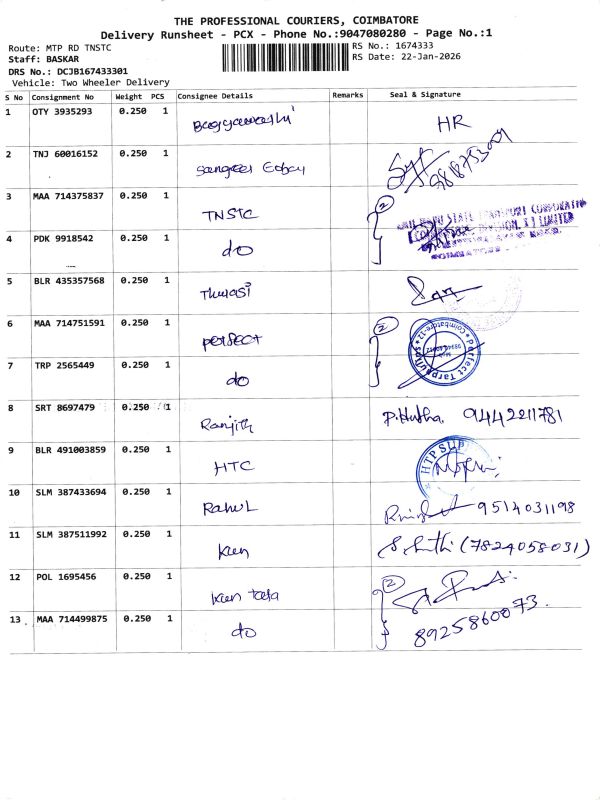 THE PROFESSIONAL COURIERS, COIMBATORE
Delivery Runsheet - PCX - Phone No.:9047080280 - Page No.:1
Route: MTP RD TNSTC RS No.: 1674333
Staff: BASKAR RS Date: 22-Jan-2026
DRS No.: DCJB167433301
Vehicle: Two Wheeler Delivery
S No Consignment No Weight PCS Consignee Details Remarks Seal & Signature
1 OTY 3935293 0.250 1 HR
2 TNJ 60016152 0.250 1 9818753009
3 MAA 714375837 0.250 1 TNSTC 2
4 PDK 9918542 0.250 1 do
5 BLR 435357568 0.250 1 Thulasi
6 MAA 714751591 0.250 1 perfect 2 Perfect Tarpaulin Coimbatore-12
7 TRP 2565449 0.250 1 do
8 SRT 8697479 0.250 1 Ranjith 9442211781
9 BLR 491003859 0.250 1 HTC HTP SUP
10 SLM 387433694 0.250 1 Rahul 9514031198
11 SLM 387511992 0.250 1 Kun (7824058031)
12 POL 1695456 0.250 1 Kun tata 2
13 MAA 714499875 0.250 1 do 8925860073